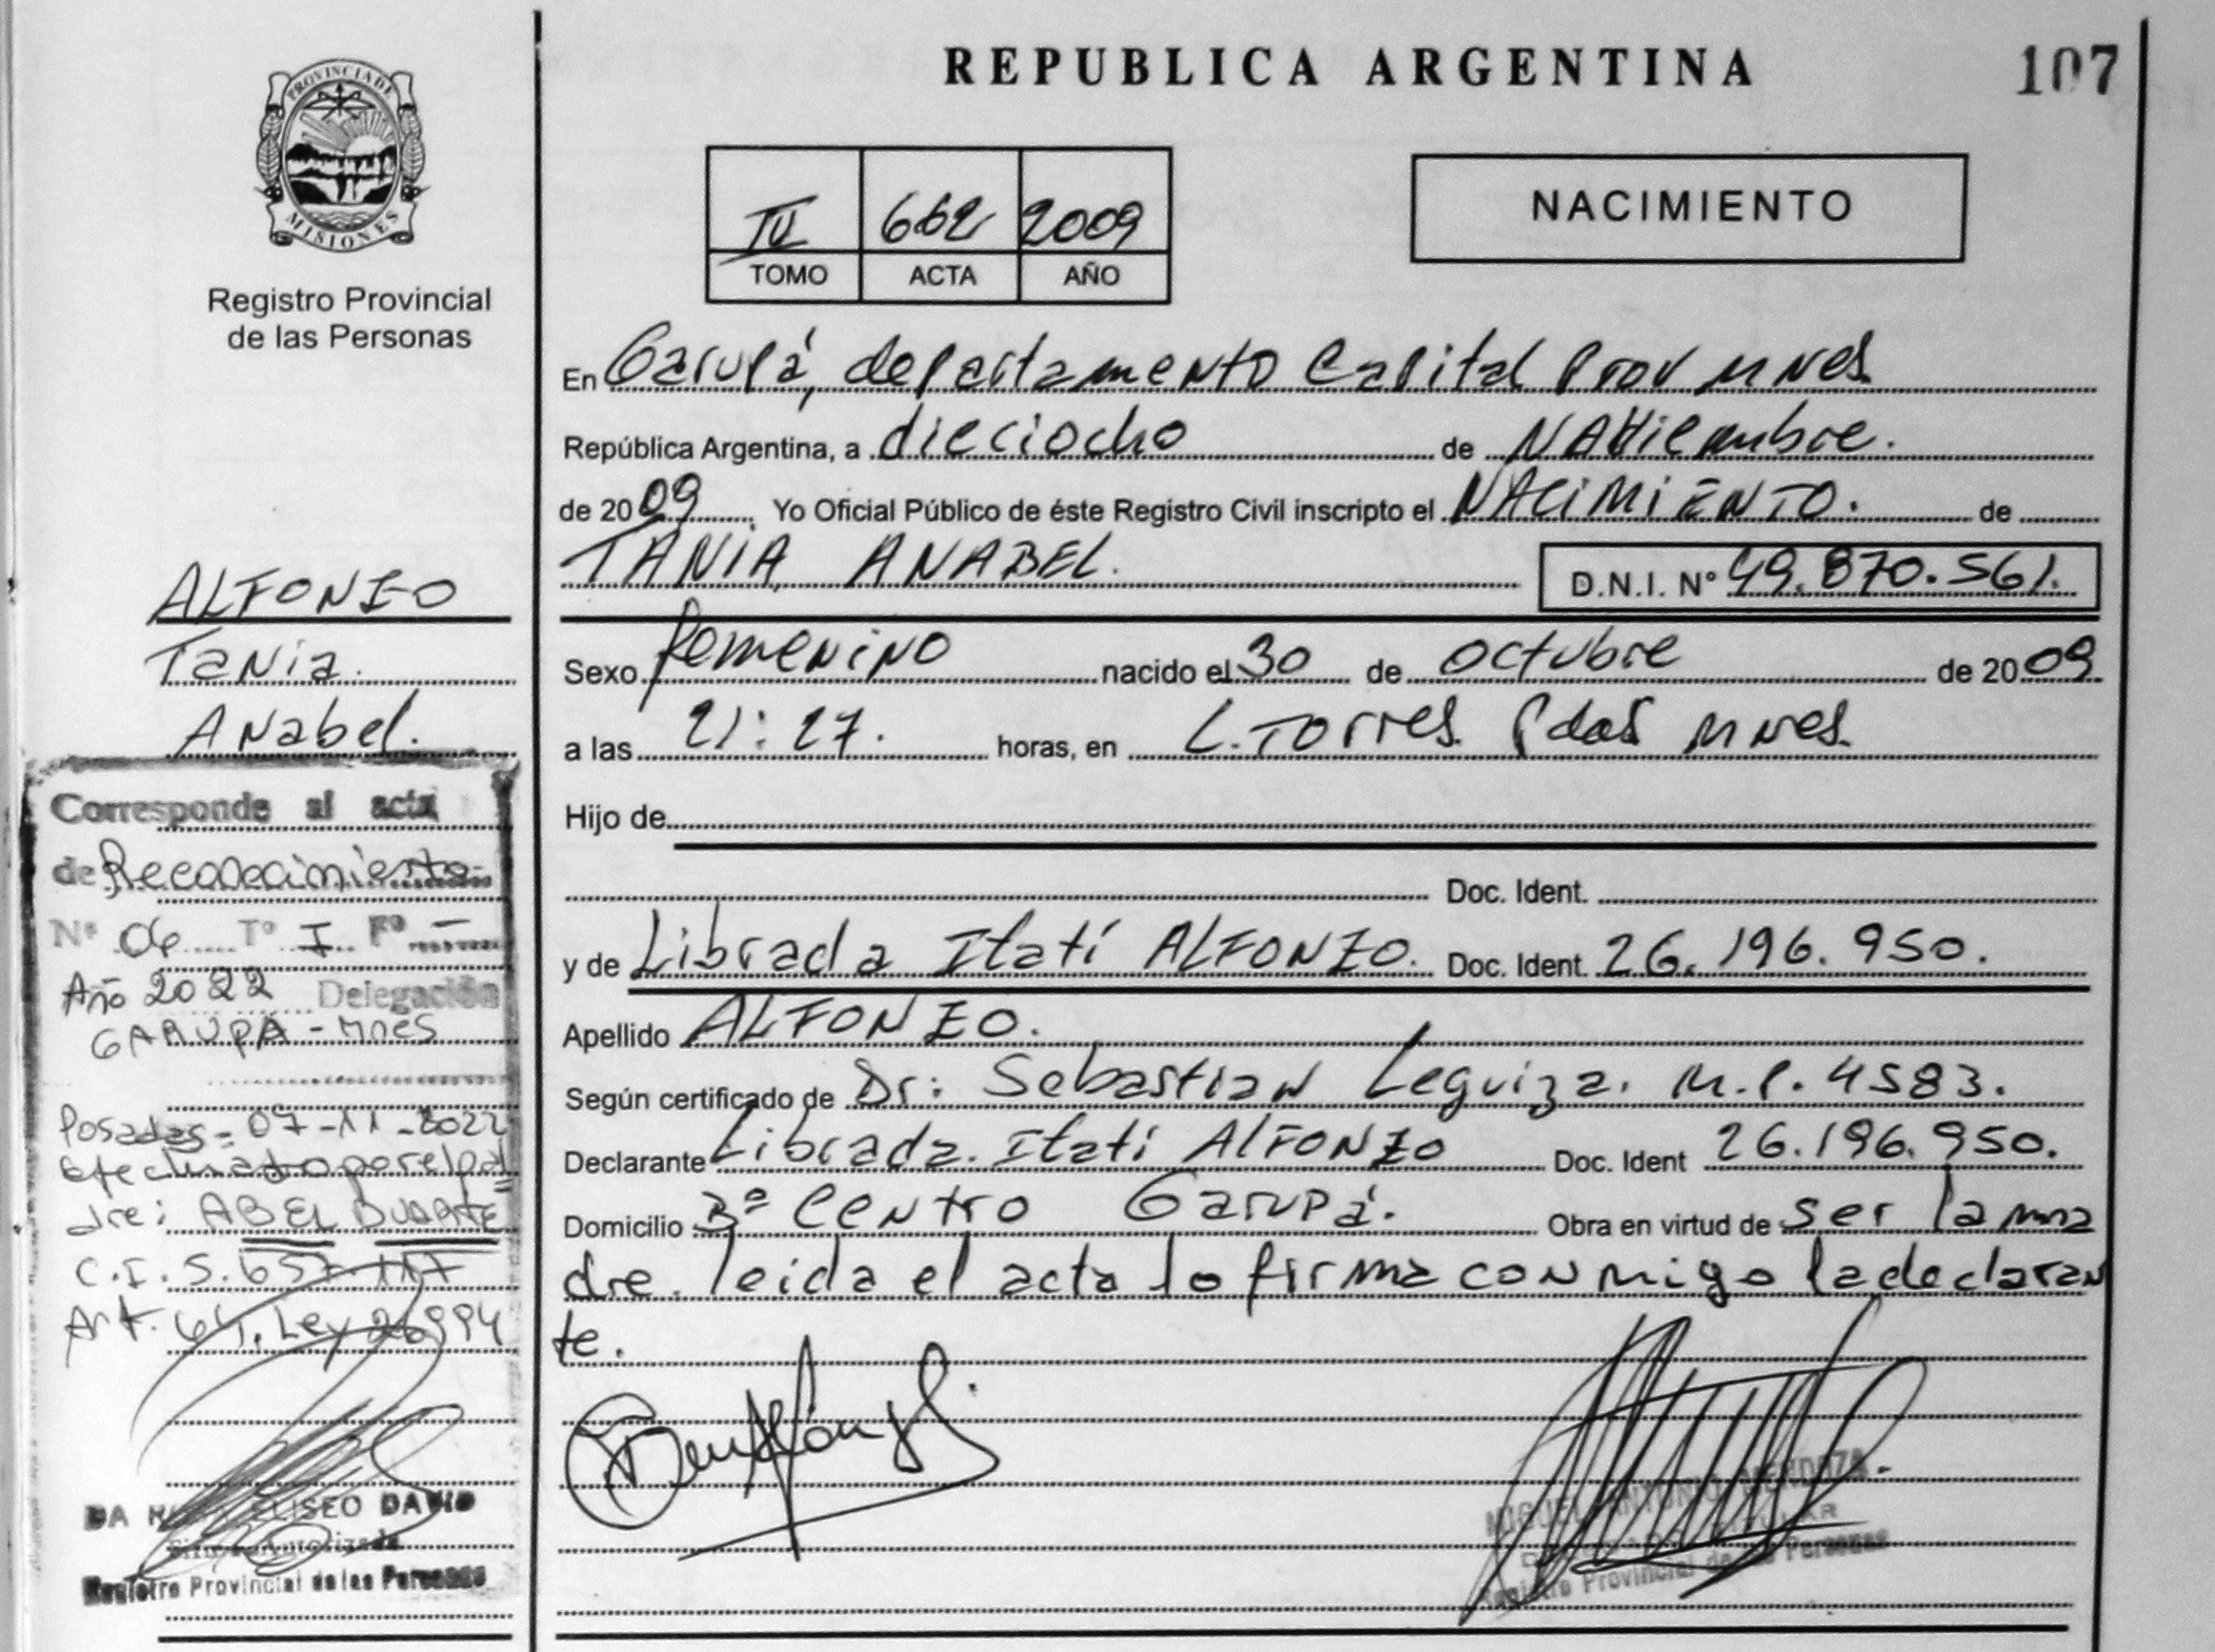 PROVINCIA DE
MISIONES
Registro Provincial
de las Personas
ALFONZO
Tania.
Anabel.
Corresponde al acta
de Reconocimiento
Nº 06 Tº I Fº -
Año 2022 Delegación
GARUPA - Mnes
Posadas = 07-11-2022
Efectuado por el pa=
dre: ABEL DUARTE
C.I. 5.657.117
Art. 64. Ley 26994
DA ELISEO DAVID
Registro Provincial de las Personas
REPUBLICA ARGENTINA
107
IV 662 2009
TOMO ACTA AÑO
NACIMIENTO
En Garupá, departamento Capital Prov Mnes.
República Argentina, a dieciocho de Noviembre.
de 2009 Yo Oficial Público de éste Registro Civil inscripto el NACIMIENTO. de
TANIA ANABEL. D.N.I. Nº 49.870.561.
Sexo femenino nacido el 30 de octubre de 2009.
a las 21:27. horas, en L. Torres Pdas Mnes.
Hijo de
Doc. Ident.
y de Librada Itatí ALFONZO. Doc. Ident. 26.196.950.
Apellido ALFONZO.
Según certificado de Dr: Sebastian Leguiza. M.P. 4583.
Declarante Librada. Itatí ALFONZO Doc. Ident 26.196.950.
Domicilio Bº Centro Garupá. Obra en virtud de ser la ma
dre. leida el acta lo firma conmigo la declaran
te.
MIGUEL ANTONIO MENDOZA
Registro Provincial de las Personas